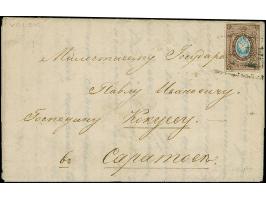 Милостивому Государю
Павлу Ивановичу
Господину Кокуеву.
въ Саратовъ.